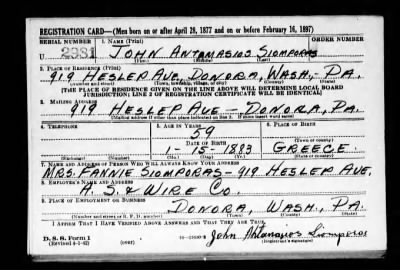 REGISTRATION CARD—(Men born on or after April 28, 1877 and on or before February 16, 1897)
SERIAL NUMBER 1. NAME (Print) ORDER NUMBER
U 2381 JOHN ANTOMASIOS SIOMPORAS
(First) (Middle) (Last)
2. PLACE OF RESIDENCE (Print)
919 HESLEP AVE, DONORA, WASH, PA.
(Number and street) (Town, township, village, or city) (County) (State)
[THE PLACE OF RESIDENCE GIVEN ON THE LINE ABOVE WILL DETERMINE LOCAL BOARD
JURISDICTION; LINE 2 OF REGISTRATION CERTIFICATE WILL BE IDENTICAL]
3. MAILING ADDRESS
919 HESLEP AVE — DONORA, PA.
[Mailing address if other than place indicated on line 2. If same insert word same]
4. TELEPHONE 5. AGE IN YEARS 6. PLACE OF BIRTH
59
DATE OF BIRTH (Town or county)
1-15-1883 GREECE
(Exchange) (Number) (Mo.) (Day) (Yr.) (State or country)
7. NAME AND ADDRESS OF PERSON WHO WILL ALWAYS KNOW YOUR ADDRESS
MRS. FANNIE SIOMPORAS—919 HESLEP AVE,
8. EMPLOYER'S NAME AND ADDRESS
A. S. & WIRE CO.
9. PLACE OF EMPLOYMENT OR BUSINESS
DONORA, WASH., PA.
(Number and street or R. F. D. number) (Town) (County) (State)
I AFFIRM THAT I HAVE VERIFIED ABOVE ANSWERS AND THAT THEY ARE TRUE.
D. S. S. Form 1
(Revised 4-1-42) (over) John Antanasios Siomporas
(Registrant's signature)